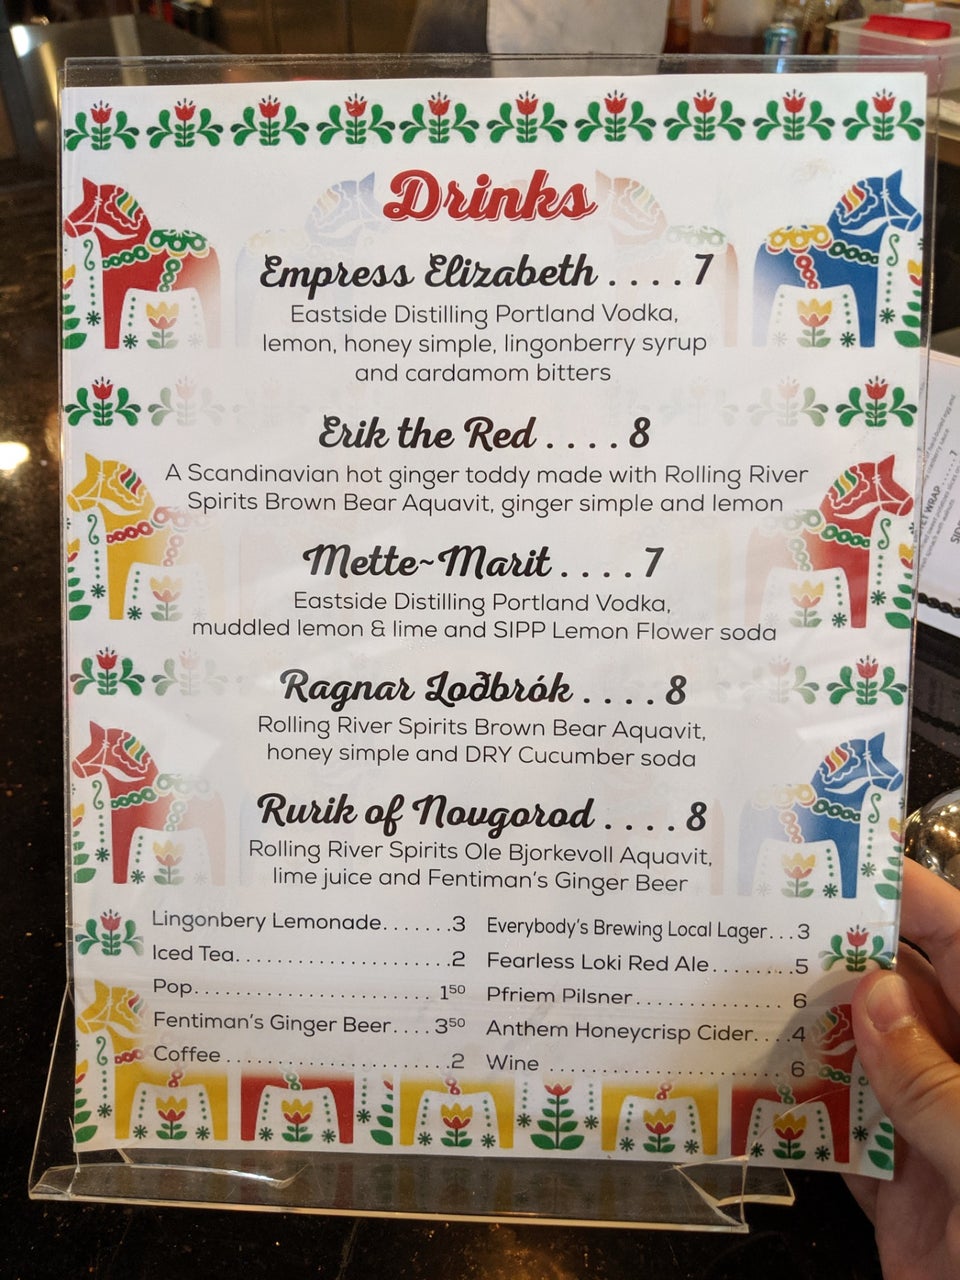 Drinks
Empress Elizabeth . . . . 7
Eastside Distilling Portland Vodka,
lemon, honey simple, lingonberry syrup
and cardamom bitters
Erik the Red . . . . 8
A Scandinavian hot ginger toddy made with Rolling River
Spirits Brown Bear Aquavit, ginger simple and lemon
Mette~Marit . . . . 7
Eastside Distilling Portland Vodka,
muddled lemon & lime and SIPP Lemon Flower soda
Ragnar Loðbrók . . . . 8
Rolling River Spirits Brown Bear Aquavit,
honey simple and DRY Cucumber soda
Rurik of Novgorod . . . . 8
Rolling River Spirits Ole Bjorkevoll Aquavit,
lime juice and Fentiman's Ginger Beer
Lingonbery Lemonade.......3
Iced Tea........................2
Pop..............................1⁵⁰
Fentiman's Ginger Beer....3⁵⁰
Coffee .........................2
Everybody's Brewing Local Lager...3
Fearless Loki Red Ale.........5
Pfriem Pilsner.................. 6
Anthem Honeycrisp Cider....4
Wine ............................ 6
WRAP ..... 7